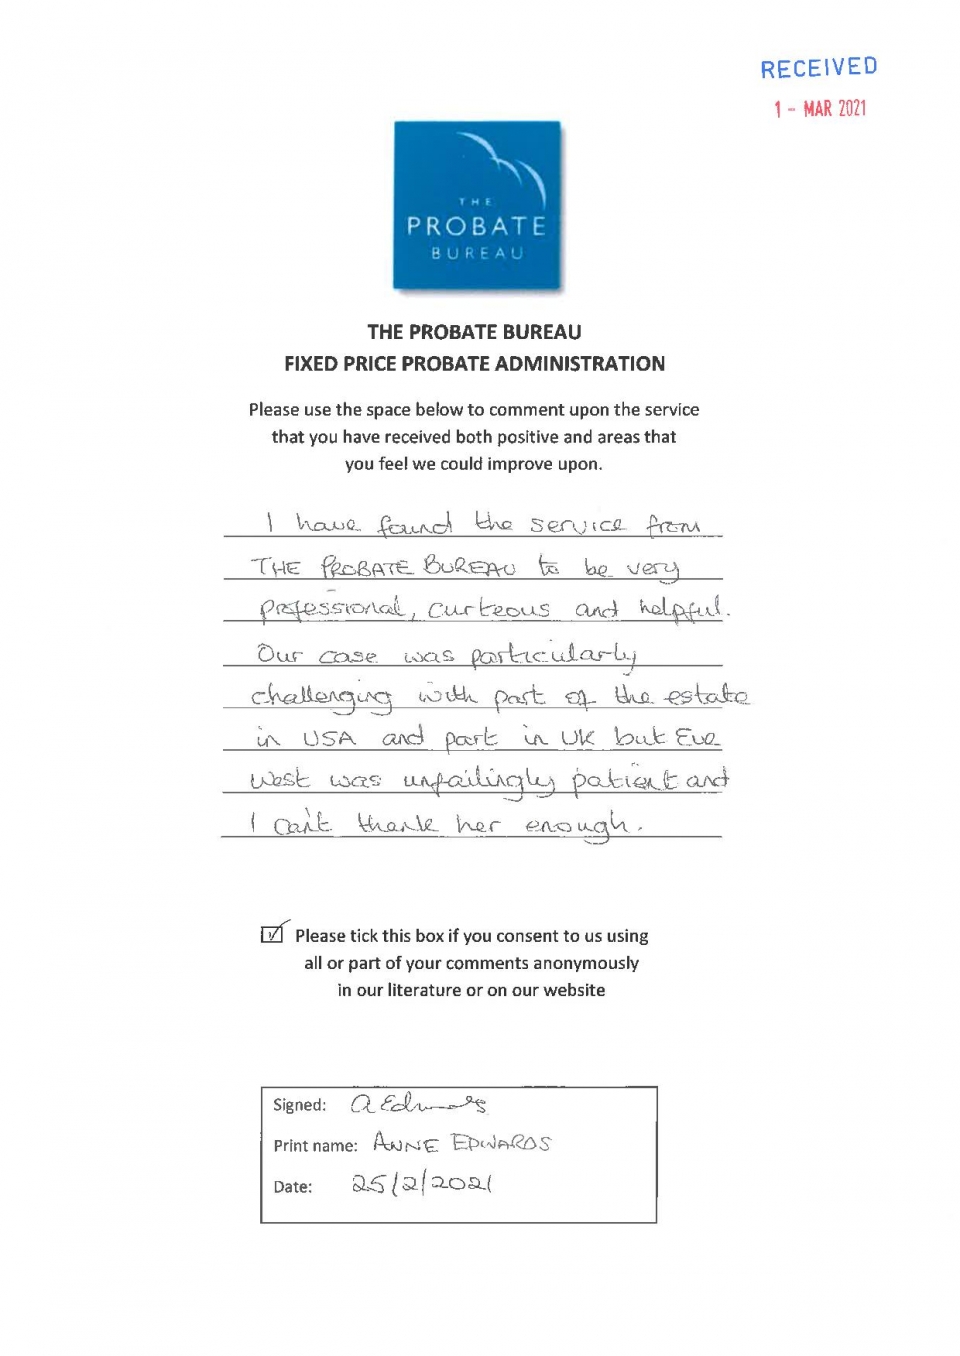 RECEIVED
1 - MAR 2021
THE
PROBATE
BUREAU
THE PROBATE BUREAU
FIXED PRICE PROBATE ADMINISTRATION
Please use the space below to comment upon the service
that you have received both positive and areas that
you feel we could improve upon.
I have found the service from
THE PROBATE BUREAU to be very
professional, curteous and helpful.
Our case was particularly
challenging with part of the estate
in USA and part in UK but Eve
West was unfailingly patient and
I can't thank her enough.
Please tick this box if you consent to us using
all or part of your comments anonymously
in our literature or on our website
Signed: A Edwards
Print name: ANNE EDWARDS
Date: 25/2/2021